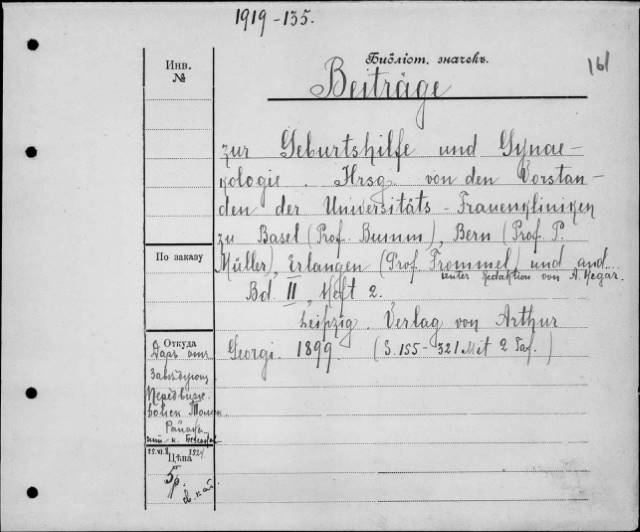 1919-135.
Инв. №
Библіот. значекъ.
161
Beiträge
zur Geburtshilfe und Gynae-
kologie. Hrsg. von den Vorstän-
den der Universitäts-Frauenkliniken
zu Basel (Prof. Bumm), Bern (Prof. P.
Müller), Erlangen (Prof. Frommel) und and...
unter Redaktion von A. Hegar.
Bd. II, Heft 2.
Leipzig. Verlag von Arthur
Georgi. 1899. (S. 155-321 Mit 2 Taf.)
По заказу
Откуда
Даръ отъ
Цѣна
5р.